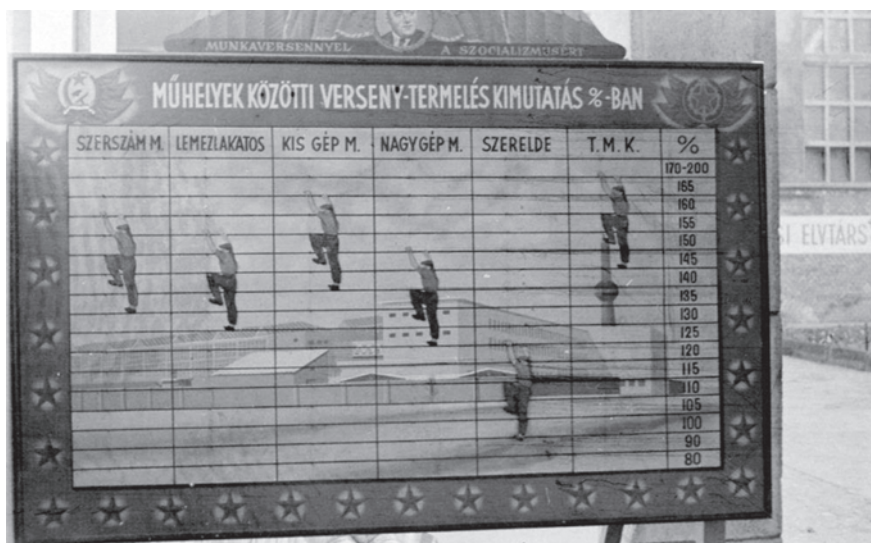 MUNKAVERSENNYEL A SZOCIALIZMUSÉRT
MŰHELYEK KÖZÖTTI VERSENY-TERMELÉS KIMUTATÁS %-BAN
SZERSZÁM M. LEMEZLAKATOS KIS GÉP M. NAGY GÉP M. SZERELDE T.M.K. %
170-200
165
160
155
150
145
140
135
130
125
120
115
110
105
100
90
80
ELVTÁRS